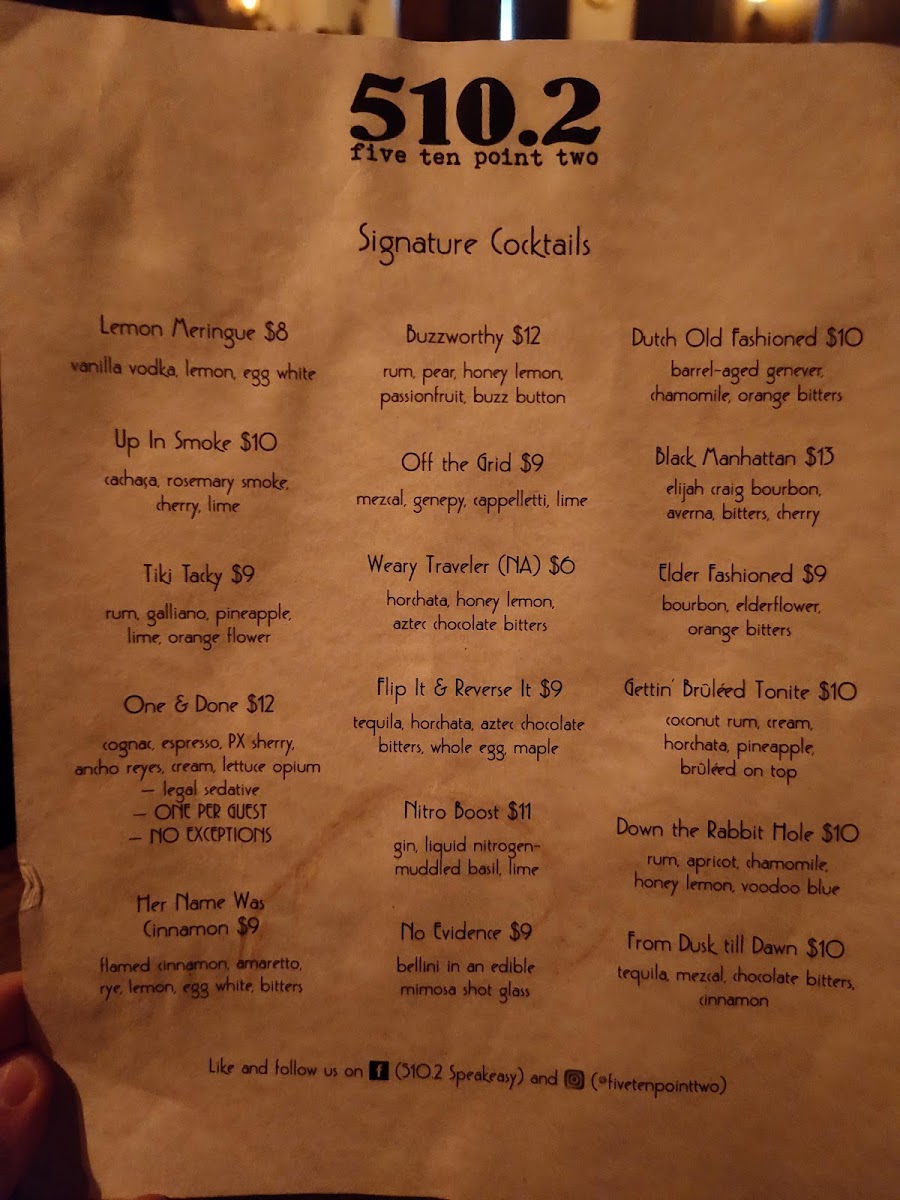 510.2
five ten point two
Signature Cocktails
Lemon Meringue $8
vanilla vodka, lemon, egg white
Up In Smoke $10
cachaça, rosemary smoke,
cherry, lime
Tiki Tacky $9
rum, galliano, pineapple,
lime, orange flower
One & Done $12
cognac, espresso, PX sherry,
ancho reyes, cream, lettuce opium
— legal sedative
— ONE PER GUEST
— NO EXCEPTIONS
Her Name Was
Cinnamon $9
flamed cinnamon, amaretto,
rye, lemon, egg white, bitters
Buzzworthy $12
rum, pear, honey lemon,
passionfruit, buzz button
Off the Grid $9
mezcal, genepy, cappelletti, lime
Weary Traveler (NA) $6
horchata, honey lemon,
aztec chocolate bitters
Flip It & Reverse It $9
tequila, horchata, aztec chocolate
bitters, whole egg, maple
Nitro Boost $11
gin, liquid nitrogen-
muddled basil, lime
No Evidence $9
bellini in an edible
mimosa shot glass
Dutch Old Fashioned $10
barrel-aged genever,
chamomile, orange bitters
Black Manhattan $13
elijah craig bourbon,
averna, bitters, cherry
Elder Fashioned $9
bourbon, elderflower,
orange bitters
Gettin' Brûléed Tonite $10
coconut rum, cream,
horchata, pineapple,
brûléed on top
Down the Rabbit Hole $10
rum, apricot, chamomile,
honey lemon, voodoo blue
From Dusk till Dawn $10
tequila, mezcal, chocolate bitters,
cinnamon
Like and follow us on f (510.2 Speakeasy) and (@fivetenpointtwo)